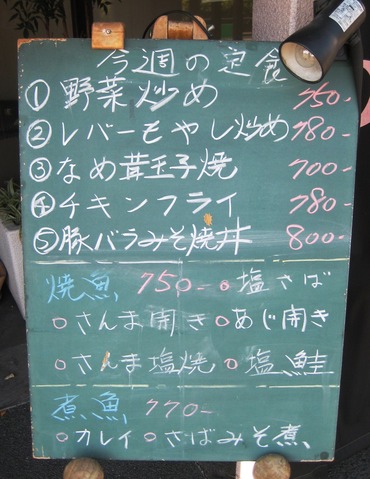 今週の定食
①野菜炒め 750-
②レバーもやし炒め 780-
③なめ茸玉子焼 700-
④チキンフライ 780-
⑤豚バラみそ焼丼 800-
焼魚 750- ○塩さば
○さんま開き ○あじ開き
○さんま塩焼 ○塩鮭
煮魚 770-
○カレイ ○さばみそ煮、